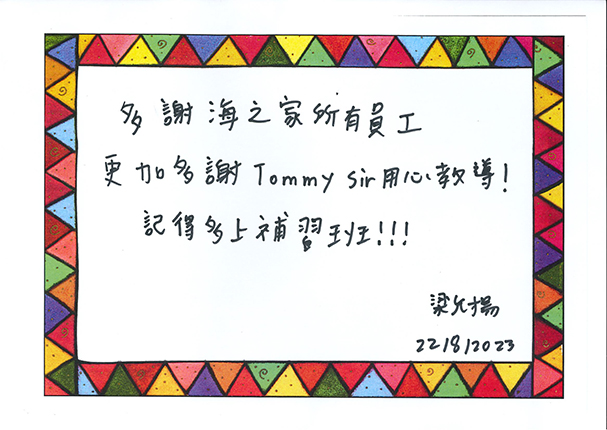 多謝海之家所有員工
更加多謝Tommy sir用心教導!
記得多上補習班!!!
梁允揚
22/8/2023